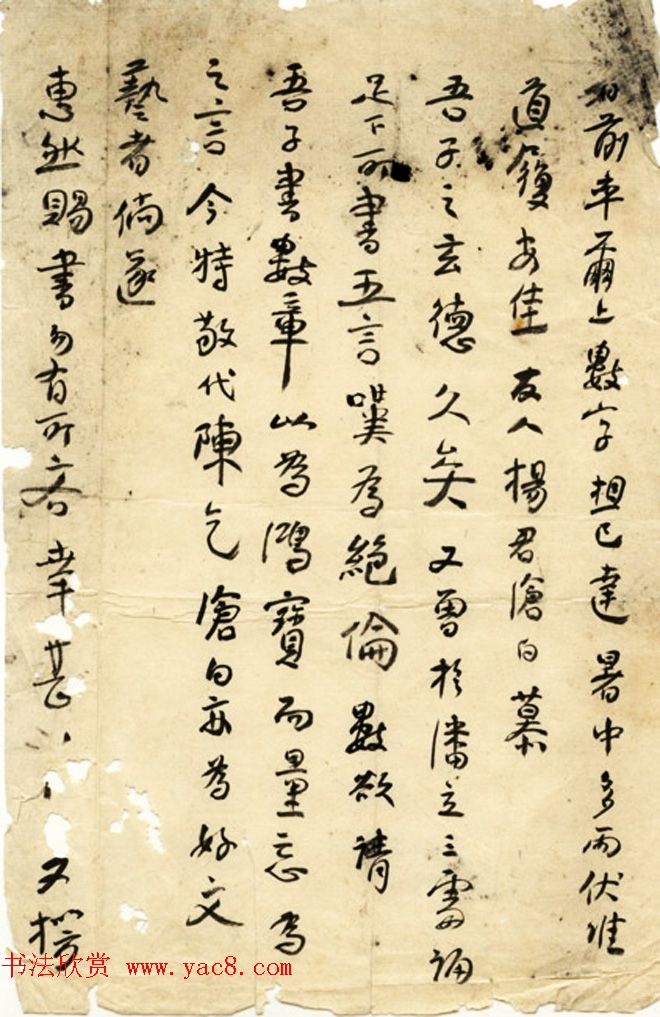 前率爾上數字想已達暑中多雨伏惟
道履安佳友人楊君滄白慕
吾子之玄德久矣又曾於潘立三處誦
足下所書五言嘆為絕倫數欲請
吾子書數章以為鴻寶而量忘為
之言今特敬代陳乞滄白亦為好文
藝者倘邀
惠然賜書勿有所吝幸甚
书法欣赏 www.yac8.com